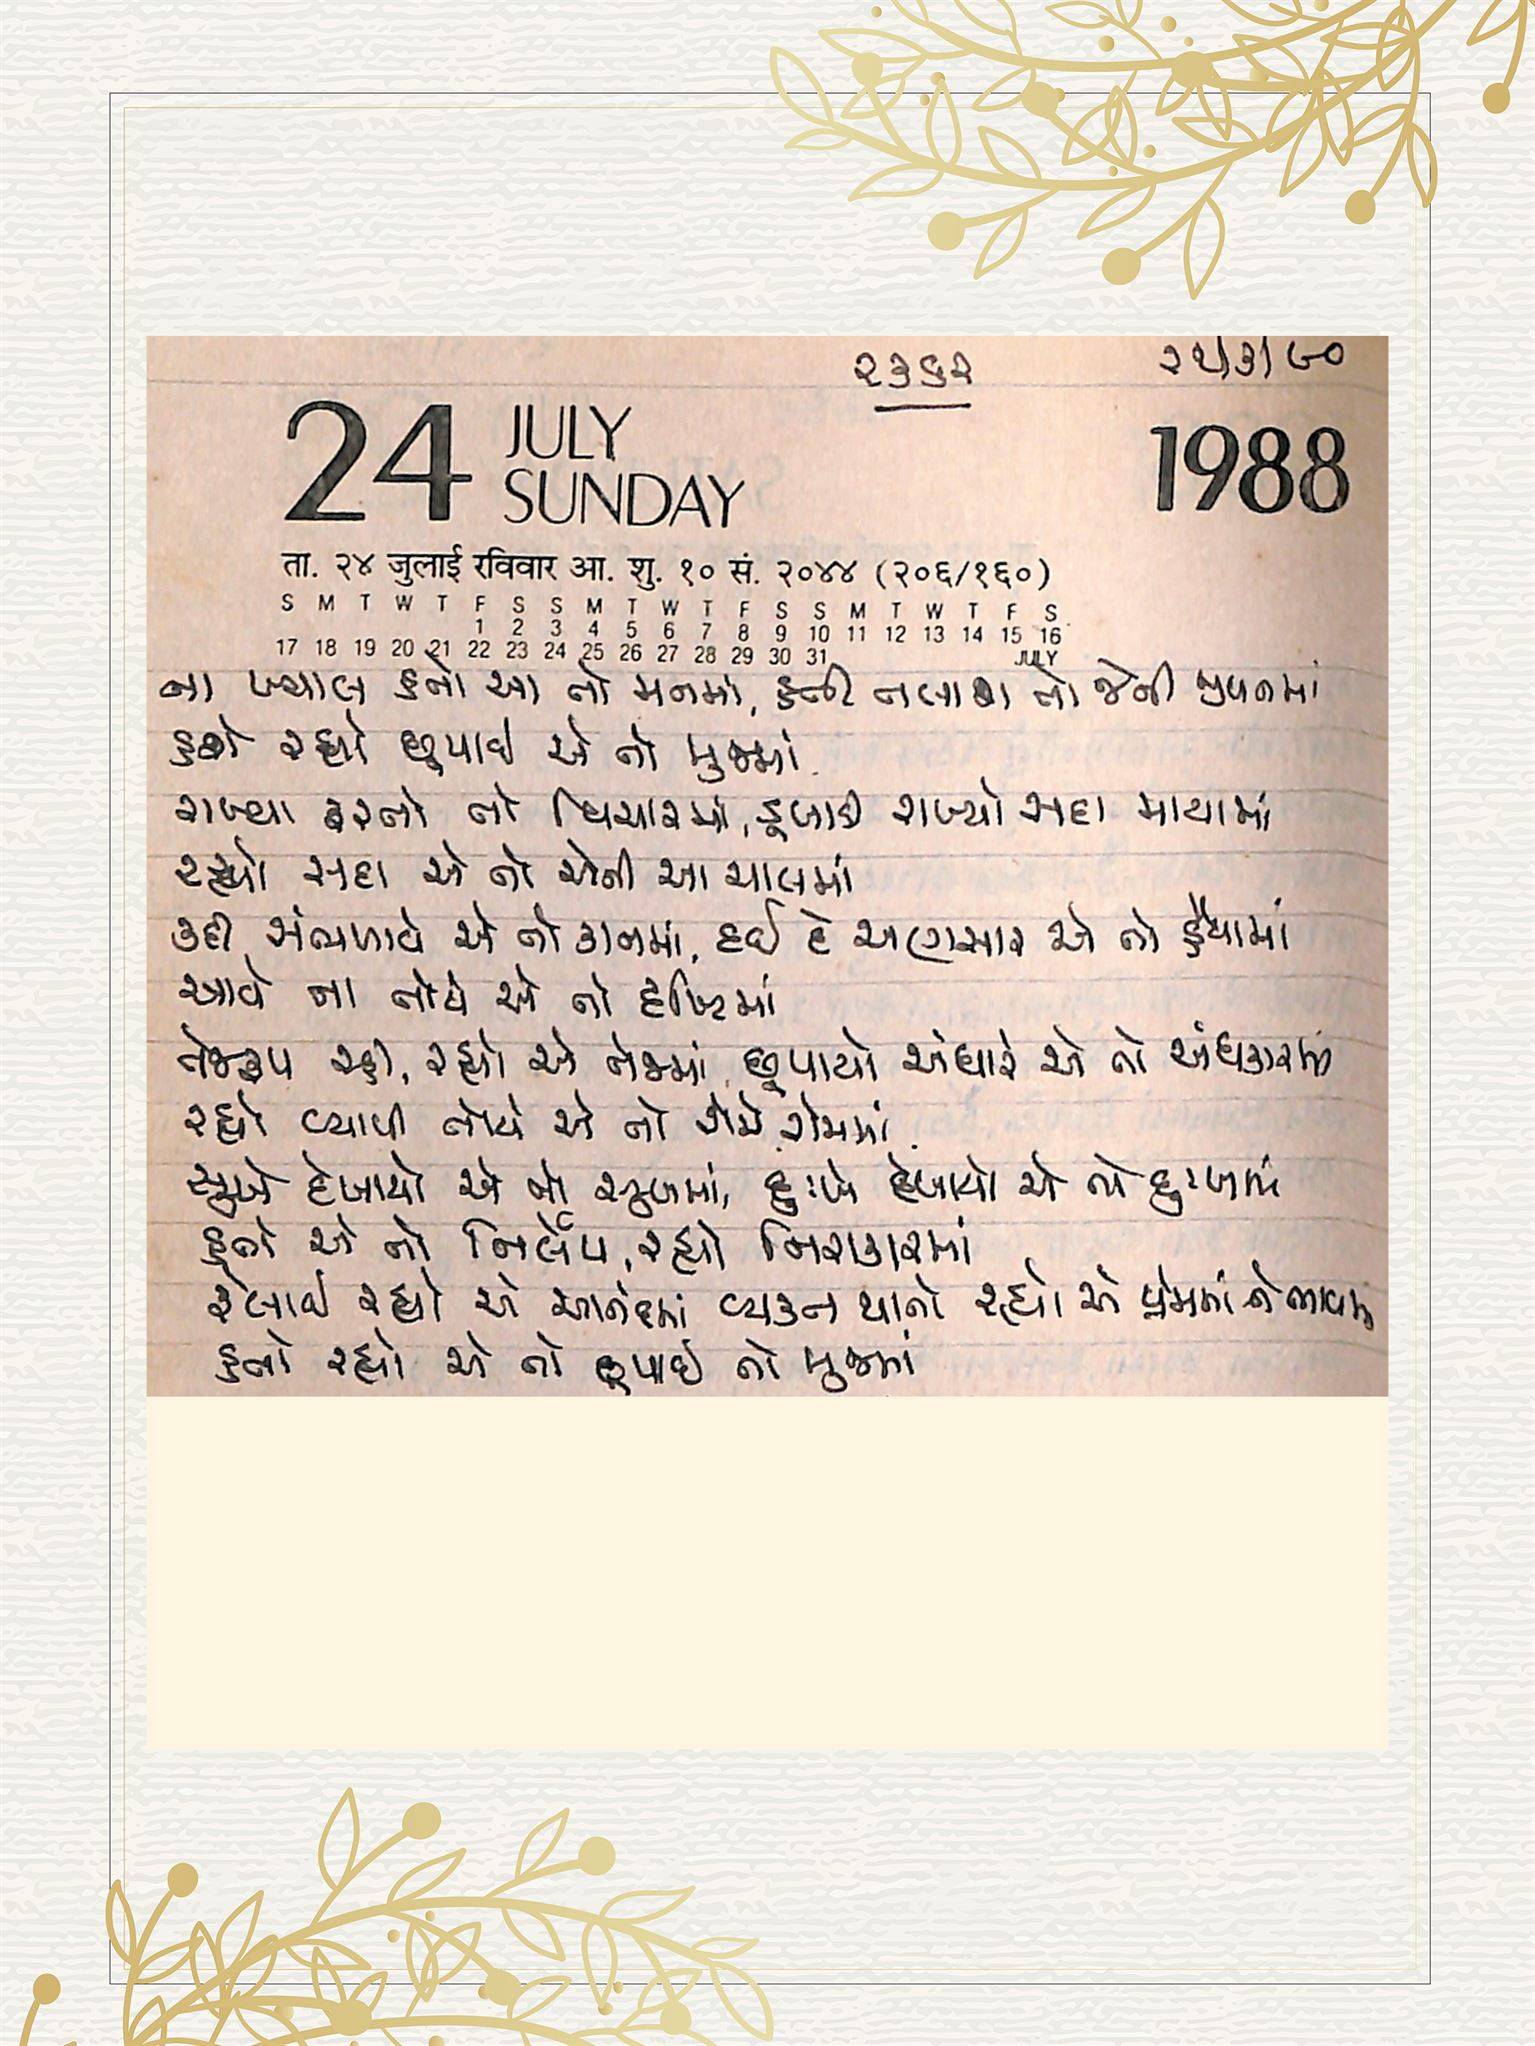 ૨૩૬૨ ૨૫/૩/૯૦
24 JULY
SUNDAY
1988
ता. २४ जुलाई रविवार आ. शु. १० सं. २०४४ (२०६/१६०)
S M T W T F S S M T W T F S S M T W T F S
1 2 3 4 5 6 7 8 9 10 11 12 13 14 15 16
17 18 19 20 21 22 23 24 25 26 27 28 29 30 31 JULY
ના ખ્યાલ હતો આ તો મનમાં, હતી તલાશ તો જેની જીવનમાં
હતો રહ્યો છુપાઈ એ તો મુજમાં
રાખ્યા ફરતો તો વિચારમાં, ડુબાડી રાખ્યો સદા માયામાં
રહ્યો સદા એ તો એની આ ચાલમાં
કદી સંભળાયે એ તો કાનમાં, દઈ દે અણસાર એ તો હૈયામાં
આવે ના તોયે એ તો દૃષ્ટિમાં
તેજરૂપ રહી, રહ્યો એ તેજમાં, છુપાયો અંધારે એ તો અંધકારમાં
રહ્યો વ્યાપી તોયે એ તો રોમે રોમમાં
સુખે દેખાયો એ તો સુખમાં, દુઃખે દેખાયો એ તો દુઃખમાં
હતો એ તો નિર્લેપ, રહ્યો નિરાકારમાં
રેલાઈ રહ્યો એ આનંદમાં વ્યક્ત થાતો રહ્યો એ પ્રેમમાં ને ભાવમાં
હતો રહ્યો એ તો છુપાઈ તો મુજમાં